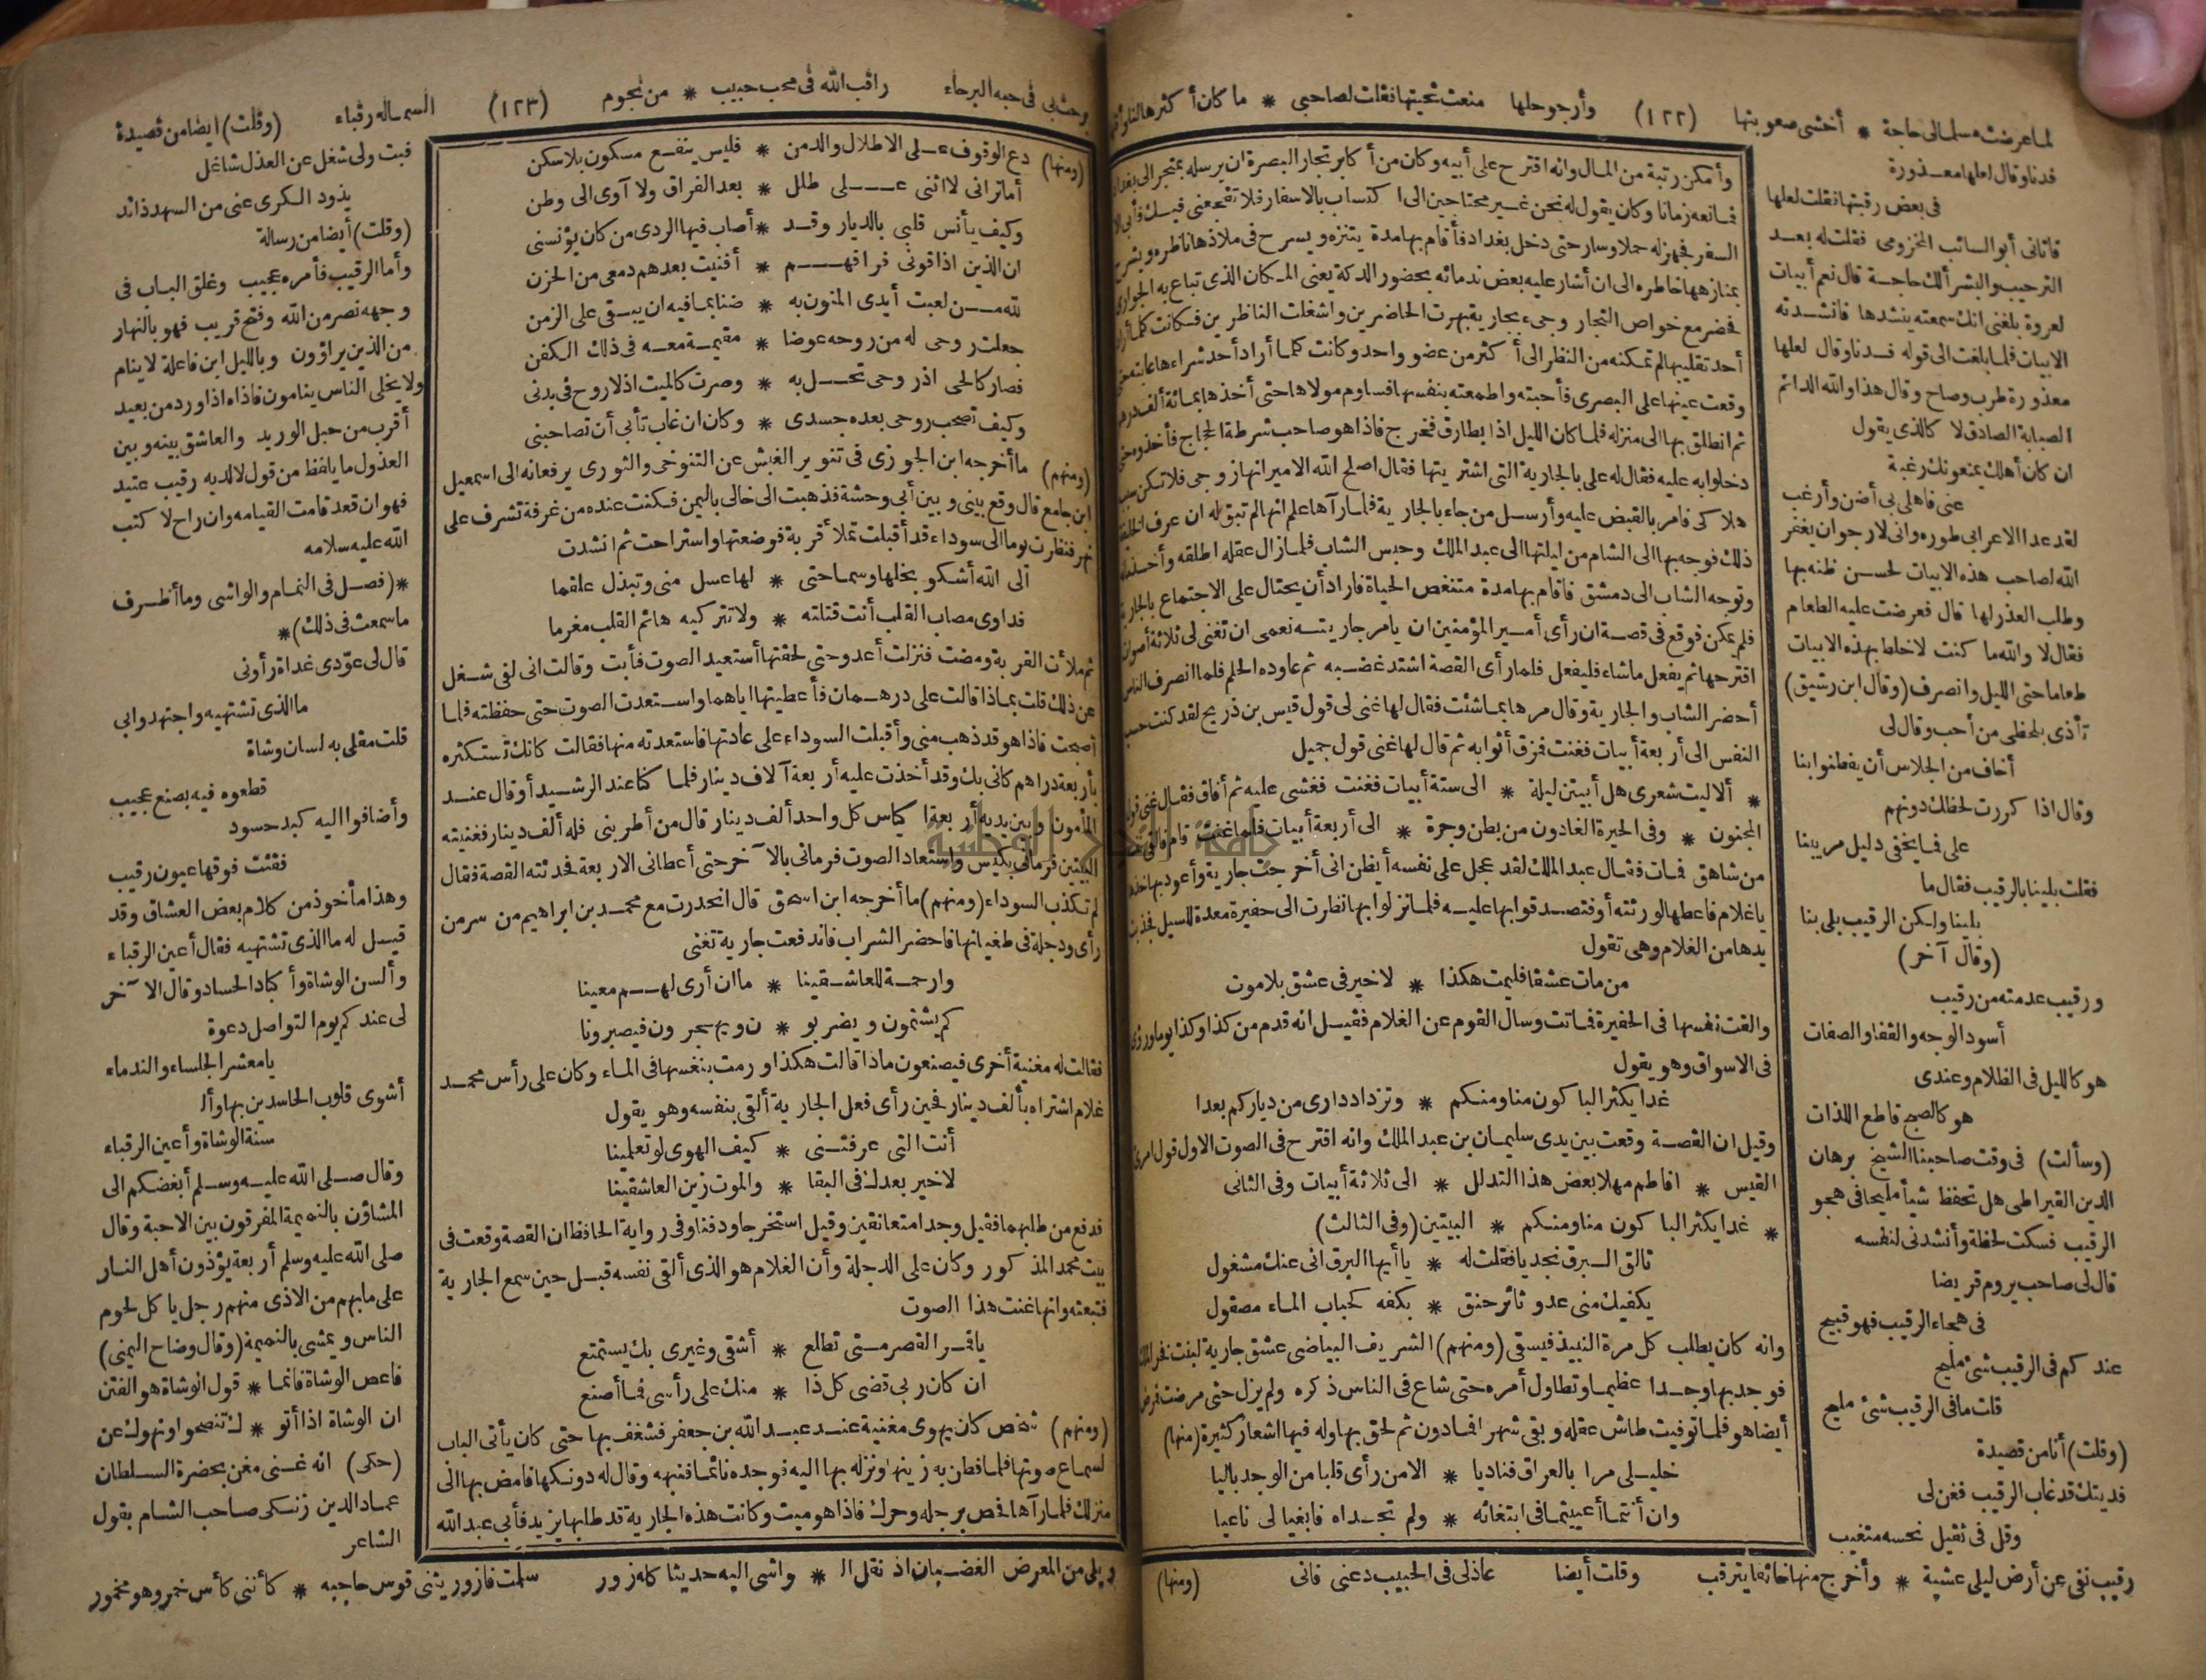 لما عرضت مسلما لى حاجة * أخشى صعوبتها (١٢٢) وأرجو حلها منعت تحيتها فقلت لصاحبى * ما كان أكثرها لنا وأقلها
فدنا وقال لعلها معذورة
فى بعض رقبتها فقلت لعلها
فأتانى أبو السائب المخزومى فقلت له بعد
الترحيب والبشر ألك حاجة قال نعم أبيات
لعروة بلغنى انك سمعته ينشدها فانشدته
الابيات فلما بلغت الى قوله فدنا وقال لعلها
معذورة طرب وصاح وقال هذا والله الدائم
الصبابة الصادق لا كالذى يقول
ان كان أهلك يمنعونك رغبة
عنى فاهلى بى أضن وأرغب
لقد عدا الاعرابى طوره وانى لارجو ان يغفر
الله لصاحب هذه الابيات لحسن ظنه بها
وطلب العذر لها قال فعرضت عليه الطعام
فقال لا والله ما كنت لاخلط بهذه الابيات
طعاما حتى الليل وانصرف (وقال ابن رشيق)
تأذى بلحظى من أحب وقال لى
أخاف من الجلاس أن يفطنوا بنا
وقال اذا كررت لحظك دونهم
على فما يخفى دليل مريبنا
فقلت بلينا بالرقيب فقال ما
بلينا ولكن الرقيب بلى بنا
(وقال آخر)
ورقيب عدمته من رقيب
أسود الوجه والقفا والصفات
هو كالليل فى الظلام وعندى
هو كالصبح قاطع اللذات
(وسألت) فى وقت صاحبنا الشيخ برهان
الدين القيراطى هل تحفظ شيأ مليحا فى هجو
الرقيب فسكت لحظة وأنشدنى لنفسه
قال لى صاحب يروم قريضا
فى هجاء الرقيب فهو قبيح
عندكم فى الرقيب شئ مليح
قلت ما فى الرقيب شئ مليح
(وقلت) أنا من قصيدة
فديتك قد غاب الرقيب فغن لى
وقل فى ثقيل نحسه متغيب
رقيب نفى عن أرض ليلى عشية * وأخرج منها خائفا يترقب وقلت أيضا عاذلى فى الحبيب دعنى فانى (ومنها)
وأمكن رتبة من المال وانه اقترح على أبيه وكان من أكابر تجار البصرة ان يرسله بمتجر الى بغداد
فمانعه زمانا وكان يقول له نحن غير محتاجين الى اكتساب بالاسفار فلا تفجعنى فيك فأبى الا
السفر فجهز له حملا وسار حتى دخل بغداد فأقام بها مدة يتنزه ويسرح فى ملاذها ناظره ويشرح
بمنازهها خاطره الى ان أشار عليه بعض ندمائه بحضور الدكة يعنى المكان الذى تباع به الجوارى
فحضر مع خواص التجار وجىء بجارية بهرت الحاضرين واشغلت الناظرين فكانت كلما أراد
أحد تقليبها لم تمكنه من النظر الى أكثر من عضو واحد وكانت كلما أراد أحد شراءها عابته حتى
وقعت عينها على البصرى فأحبته واطمعته بنفسها فساوم مولاها حتى أخذها بمائة ألف درهم
ثم انطلق بها الى منزله فلما كان الليل اذا بطارق فخرج فاذا هو صاحب شرطة الحجاج فأخذوه حتى
دخلوا به عليه فقال له على بالجارية التى اشتريتها فقال اصلح الله الامير انها زوجى فلا تكن سبب
هلاكى فامر بالقبض عليه وأرسل من جاء بالجارية فلما رآها علم انها لم تبق له ان عرف الخليفة
ذلك فوجه بها الى الشام من ليلتها الى عبد الملك وحبس الشاب فلما زال عقله اطلقه وأخذ ماله
وتوجه الشاب الى دمشق فاقام بها مدة متنغص الحياة فاراد أن يحتال على الاجتماع بالجارية
فلم يمكن فوقع فى قصة ان رأى أمير المؤمنين ان يامر جاريته نعمى ان تغنى لى ثلاثة أصوات
اقترحها ثم يفعل ما شاء فليفعل فلما رأى القصة اشتد غضبه ثم عاوده الحلم فلما انصرف الناس
أحضر الشاب والجارية وقال مرها بما شئت فقال لها غنى لى قول قيس بن ذريح لقد كنت حسب
النفس الى أربعة أبيات فغنت فمزق أثوابه ثم قال لها غنى قول جميل
* ألا ليت شعرى هل أبيتن ليلة * الى ستة أبيات فغنت فغشى عليه ثم أفاق فقال غنى قول
المجنون * وفى الجيرة الغادون من بطن وجرة * الى أربعة أبيات فلما غنت قام فألقى نفسه
من شاهق فمات فقال عبد الملك لقد عجل على نفسه أيظن انى أخرجت جارية وأعود بها خذها
يا غلام فاعطها لورثته أو فتصدقوا بها عليه فلما نزلوا بها نظرت الى حفيرة معدة للسيل فجذبت
يدها من الغلام وهى تقول
من مات عشقا فليمت هكذا * لا خير فى عشق بلا موت
والقت نفسها فى الحفيرة فماتت وسال القوم عن الغلام فقيل انه قدم من كذا وكذا يوما ورؤى
فى الاسواق وهو يقول
غدا يكثر الباكون منا ومنكم * وتزداد دارى من دياركم بعدا
وقيل ان القصة وقعت بين يدى سليمان بن عبد الملك وانه اقترح فى الصوت الاول قول امرئ
القيس * افاطم مهلا بعض هذا التدلل * الى ثلاثة أبيات وفى الثانى
* غدا يكثر الباكون منا ومنكم * البيتين (وفى الثالث)
تالق البرق نجديا فقلت له * يا أيها البرق انى عنك مشغول
يكفيك منى عدو ثائر حنق * بكفه كحباب الماء مصقول
وانه كان يطلب كل مرة النبيذ فيسقى (ومنهم) الشريف البياضى عشق جارية لبنت فخر الملك
فوجد بها وجدا عظيما وتطاول أمره حتى شاع فى الناس ذكره ولم يزل حتى مرضت فمرض
أيضا هو فلما توفيت طاش عقله وبقى شهرا فما دون ثم لحق بها وله فيها اشعار كثيرة (منها)
خليلى مرا بالعراق فناديا * الا من رأى قلبا من الوجد باليا
وان أنتما أعييتما فى ابتغائه * ولم تجداه فابغيا لى ناعيا
وحث بى فى حبه البرحاء راقب الله فى محب حبيب * من نجوم (١٢٣) السما له رقباء (وقلت) ايضا من قصيدة
(ومنها) دع الوقوف على الاطلال والدمن * فليس ينفع مسكون بلا سكن
أما ترانى لا اثنى على طلل * بعد الفراق ولا آوى الى وطن
وكيف يأنس قلبى بالديار وقد * أصاب فيها الردى من كان يؤنسنى
ان الذين اذاقونى فراقهم * أفنيت بعدهم دمعى من الحزن
لله من لعبت أيدى المنون به * ضنا بما فيه ان يبقى على الزمن
جعلت روحى له من روحه عوضا * مقيمة معه فى ذلك الكفن
فصار كالحى اذ روحى تحل به * وصرت كالميت اذ لا روح فى بدنى
وكيف تصحب روحى بعده جسدى * وكان ان غاب تأبى أن تصاحبنى
(ومنهم) ما أخرجه ابن الجوزى فى تنوير الغبش عن التنوخى والثورى يرفعانه الى اسمعيل
ابن جامع قال وقع بينى وبين أبى وحشة فذهبت الى خالى باليمن فكنت عنده من غرفة تشرف على
نهر فنظرت يوما الى سوداء قد أقبلت تملأ قربة فوضعتها واستراحت ثم انشدت
الى الله أشكو بخلها وسماحتى * لها عسل منى وتبذل علقما
فداوى مصاب القلب أنت قتلته * ولا تتركيه هائم القلب مغرما
ثم ملأت القربة ومضت فنزلت أعدو حتى لحقتها أستعيد الصوت فأبت وقالت انى لفى شغل
عن ذلك قلت بماذا قالت على درهمان فأعطيتها اياهما واستعدت الصوت حتى حفظته فلما
أصبحت فاذا هو قد ذهب منى وأقبلت السوداء على عادتها فاستعدته منها فقالت كانك تستكثره
بأربعة دراهم كانى بك وقد أخذت عليه أربعة آلاف دينار فلما كنا عند الرشيد أو قال عند
المأمون وبين يديه أربعة اكياس كل واحد ألف دينار قال من أطربنى فله ألف دينار فغنيته
البيتين فرمانى بكيس واستعاد الصوت فرمانى بالآخر حتى أعطانى الاربعة فحدثته القصة فقال
لم تكذب السوداء (ومنهم) ما أخرجه ابن اسحق قال انحدرت مع محمد بن ابراهيم من سر من
رأى ودجلة فى طغيانها فاحضر الشراب فاندفعت جارية تغنى
وارحمة للعاشقينا * ما ان أرى لهم معينا
كم يشتمون ويضربو * ن ويهجرون فيصبرونا
فقالت له مغنية أخرى فيصنعون ماذا قالت هكذا ورمت بنفسها فى الماء وكان على رأس محمد
غلام اشتراه بألف دينار فحين رأى فعل الجارية ألقى بنفسه وهو يقول
أنت التى عرفتنى * كيف الهوى لو تعلمينا
لا خير بعدك فى البقا * والموت زين العاشقينا
فدفع من طلبهما فقيل وجدا متعانقين وقيل استخرجا ودفنا وفى رواية الحافظ ان القصة وقعت فى
بيت محمد المذكور وكان على الدجلة وأن الغلام هو الذى ألقى نفسه قبل حين سمع الجارية
فتبعته وانها غنت هذا الصوت
يا قمر القصر متى تطلع * أشقى وغيرى بك يستمتع
ان كان ربى قضى كل ذا * منك على رأسى فما أصنع
(ومنهم) شخص كان يهوى مغنية عند عبد الله بن جعفر فشغف بها حتى كان يأتى الباب
لسماع صوتها فلما فطن به زينها ونزله بها اليه فوجده نائما فنبهه وقال له دونكها فامض بها الى
منزلك فلما رآها فحص برجله وحرك فاذا هو ميت وكانت هذه الجارية قد طلبها يزيد فأبى عبد الله
فبت ولى شغل عن العذل شاغل
يذود الكرى عنى من السهد ذائد
(وقلت) أيضا من رسالة
وأما الرقيب فأمره عجيب وغلق الباب فى
وجهه نصر من الله وفتح قريب فهو بالنهار
من الذين يراؤون وبالليل ابن فاعلة لا ينام
ولا يخلى الناس ينامون فاذاه اذا ورد من بعيد
أقرب من حبل الوريد والعاشق بينه وبين
العذول ما يلفظ من قول لا لديه رقيب عتيد
فهو ان قعد قامت القيامه وان راح لا كتب
الله عليه سلامه
*(فصل فى النمام والواشى وما أظرف
ما سمعت فى ذلك)*
قال لى عوّدى غداة رأونى
ما الذى تشتهيه واجتهدوا بى
قلت مقلى به لسان وشاة
قطعوه فيه بصنع عجيب
وأضافوا اليه كبد حسود
فقئت فوقها عيون رقيب
وهذا مأخوذ من كلام بعض العشاق وقد
قيل له ما الذى تشتهيه فقال أعين الرقباء
وألسن الوشاة وأكباد الحساد وقال الآخر
لى عندكم يوم التواصل دعوة
يا معشر الجلساء والندماء
أشوى قلوب الحاسدين بها وأل
سنة الوشاة وأعين الرقباء
وقال صلى الله عليه وسلم أبغضكم الى
المشاؤن بالنميمة المفرقون بين الاحبة وقال
صلى الله عليه وسلم أربعة يؤذون أهل النار
على ما بهم من الاذى منهم رجل يا كل لحوم
الناس ويمشى بالنميمة (وقال وضاح اليمنى)
فاعص الوشاة فانما * قول الوشاة هو الفتن
ان الوشاة اذا أتو * ك تنصحوا ونهوك عن
(حكى) انه غنى مغن بحضرة السلطان
عماد الدين زنكى صاحب الشام بقول
الشاعر
ويلى من المعرض الغضبان اذ نقل ال * واشى اليه حديثا كله زور سلمت فازور يثنى قوس حاجبه * كأننى كأس خمر وهو مخمور